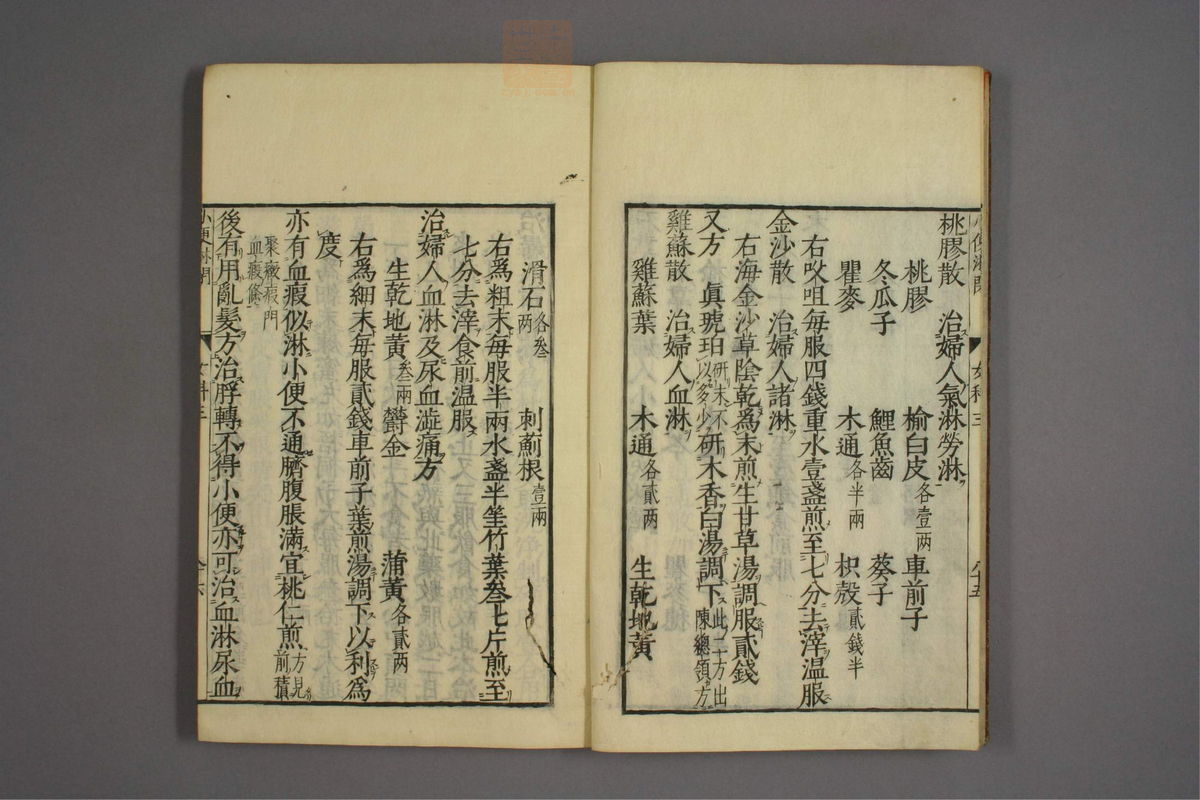 桃膠散 治婦人氣淋勞淋
桃膠 榆白皮各壹兩 車前子
冬瓜子 鯉魚齒 葵子
瞿麥 木通各半兩 枳殼貳錢半
右㕮咀每服四錢重水壹盞煎至七分去滓溫服
金沙散 治婦人諸淋
右海金沙草陰乾爲末煎生甘草湯調服貳錢
又方 眞琥珀研末不以多少研木香白湯調下此二十方出陳總領方
雞蘇散 治婦人血淋
雞蘇葉 木通各貳兩 生乾地黃
滑石各叁兩 刺薊根壹兩
右爲粗末每服半兩水盞半筀竹葉叁七片煎至
七分去滓食前溫服
治婦人血淋及尿血澁痛方
生乾地黃叁兩 欝金 蒲黃各貳兩
右爲細末每服貳錢車前子葉煎湯調下以利爲
度
亦有血瘕似淋小便不通臍腹脹滿宜桃仁煎方見前積
聚癥瘕門
血瘕條
後有用亂髮方治脬轉不得小便亦可治血淋尿血
小便淋閉